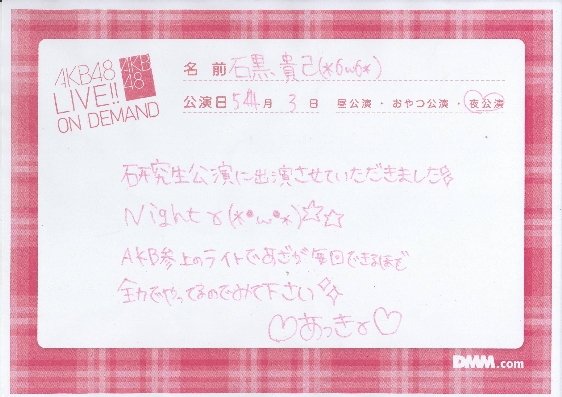 AKB48
LIVE!!
ON DEMAND
AKB
48
名前 石黒貴己(*6ω6*)
公演日 5月 3日 昼公演・おやつ公演・夜公演
研究生公演に出演させていただきました
Night γ(*•ω•*)☆☆
AKB参上のライトであざが毎回できるほど
全力でやってるのでみて下さい
♡あっきγ♡
DMM.com